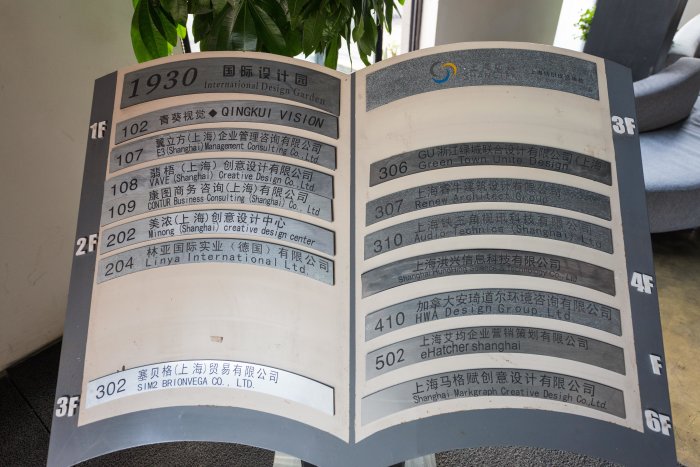 1930 国际设计园
International Design Garden
1F
102 青葵视觉◆QINGKUI VISION
107 翼立方(上海)企业管理咨询有限公司
E3(Shanghai)Management Consulting Co.,Ltd.
108 翡梧(上海)创意设计有限公司
VAVE (Shanghai) Creative Design Co.,Ltd
109 康图商务咨询(上海)有限公司
CONTUR Business Consulting (Shanghai) Co., Ltd.
2F
202 美浓(上海)创意设计中心
Minong (Shanghai) creative design center
204 林亚国际实业(德国)有限公司
Linya International Ltd.
3F
302 塞贝格(上海)贸易有限公司
SIM2 BRIONVEGA CO., LTD.
3F
306 GU浙江绿城联合设计有限公司(上海)
Green Town Unite Design
307 上海睿牛建筑设计有限公司
Renew Architect Group
310
Audio-Technics (Shanghai) Co.,Ltd.
4F
上海洪兴信息科技有限公司
410 加拿大安琦道尔环境咨询有限公司
HWA Design Group,Ltd.
F
502 上海艾均企业营销策划有限公司
eHatcher shanghai
6F
上海马格赋创意设计有限公司
Shanghai Markgraph Creative Design Co.,Ltd.